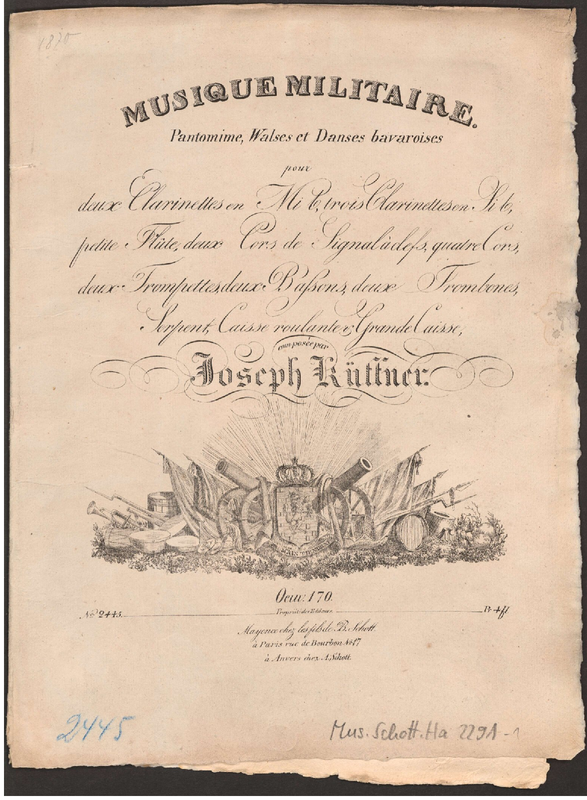 1870
MUSIQUE MILITAIRE.
Pantomime, Walses et Danses bavaroises
pour
deux Clarinettes en Mi b, trois Clarinettes en Si b,
petite Flûte, deux Cors de Signal à clefs, quatre Cors,
deux Trompettes, deux Bassons, deux Trombones,
Serpent, Caisse roulante & Grande Caisse,
composée par
Joseph Küffner.
Oeuv: 170.
No. 2445. Propriété des Editeurs. Pr. 4 fl
Mayence chez les fils de B. Schott.
à Paris rue de Bourbon No 17
à Anvers chez A. Schott.
2445 Mus. Schott. Ha 2291-1